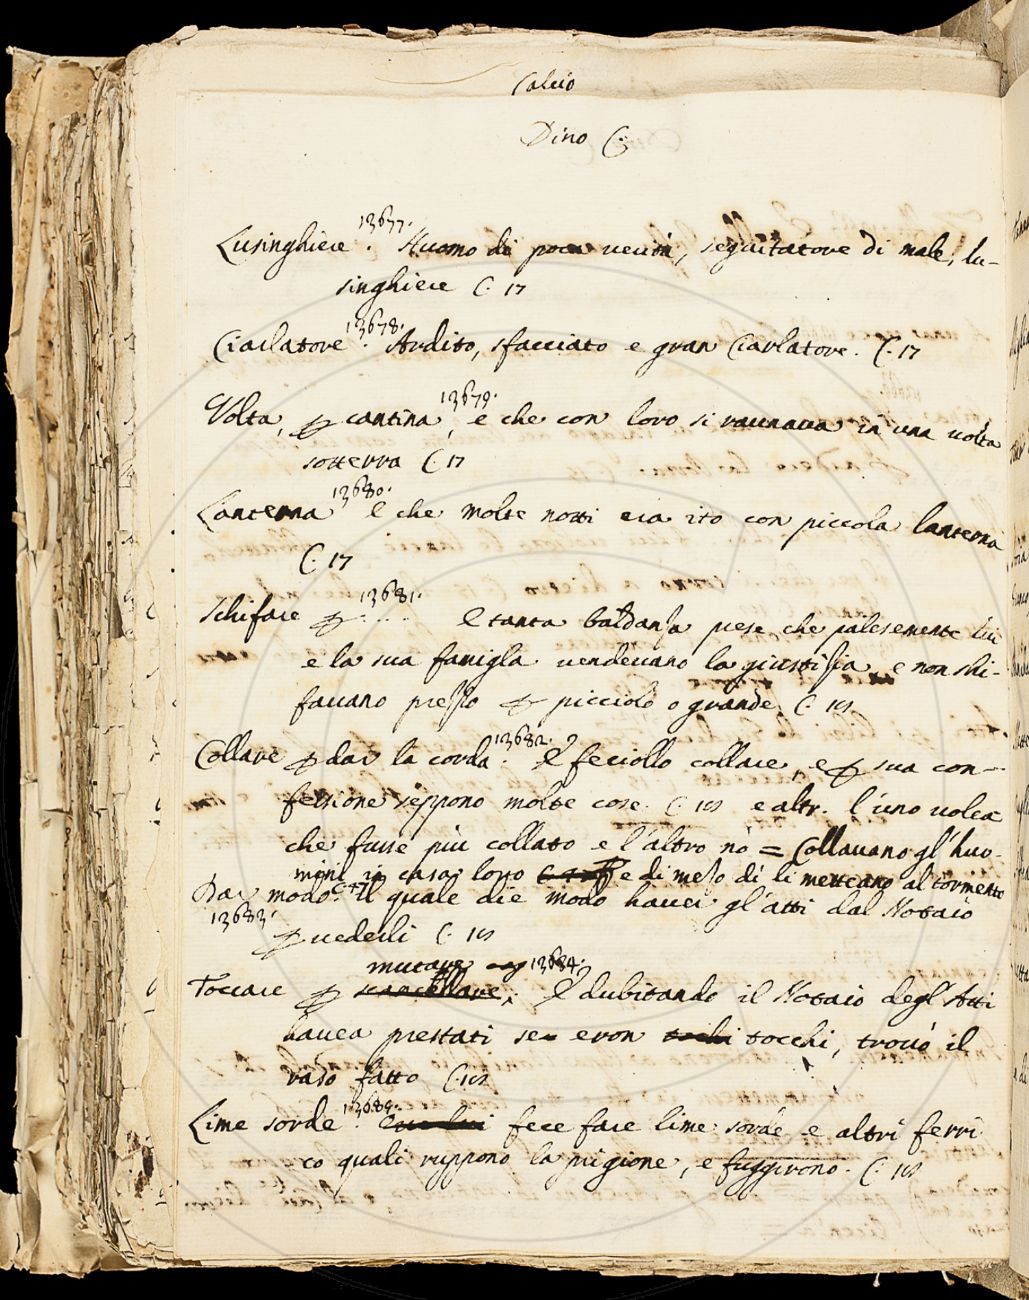 Calcio
Dino C.
13677.
Lusinghiere. Huomo di poca uerità, seguitatore di male, lu-
singhiere C. 17
13678.
Ciarlatore. Ardito, sfacciato e gran Ciarlatore. C. 17
13679.
Volta, ꝑ cantina, e che con loro si raunaua in una uolta
sotterra C. 17
13680.
Lanterna, E che molte notti era ito con piccola lanterna
C. 17
13681.
Schifare ꝑ .... E tanta baldanza prese che palesemente lui
e la sua famigla uendeuano la giustizia, e non schi-
fauano prezzo ꝑ picciolo o grande C.
13682.
Collare ꝑ dar la corda. E feciollo collare, e ꝑ sua con-
fessione seppono molte cose. C. e altr. l'uno uolea
che fusse più collato e l'altro nò = Collauano gl'huo-
mini in casa loro e di mezo dì li metteano al tormento
Dar modo. Il quale die modo hauer gl'atti dal Notaio
13683.
ꝑ uederli C.
mutare 13684.
Toccare ꝑ scancellare, E dubitando il Notaio degl'Atti
hauea prestati se eron tochi tocchi, trouò il
caso fatto C.
13685.
Lime sorde. fece fare lime sorde e altri ferri
co quali ruppono la prigione, e fuggirono. C.